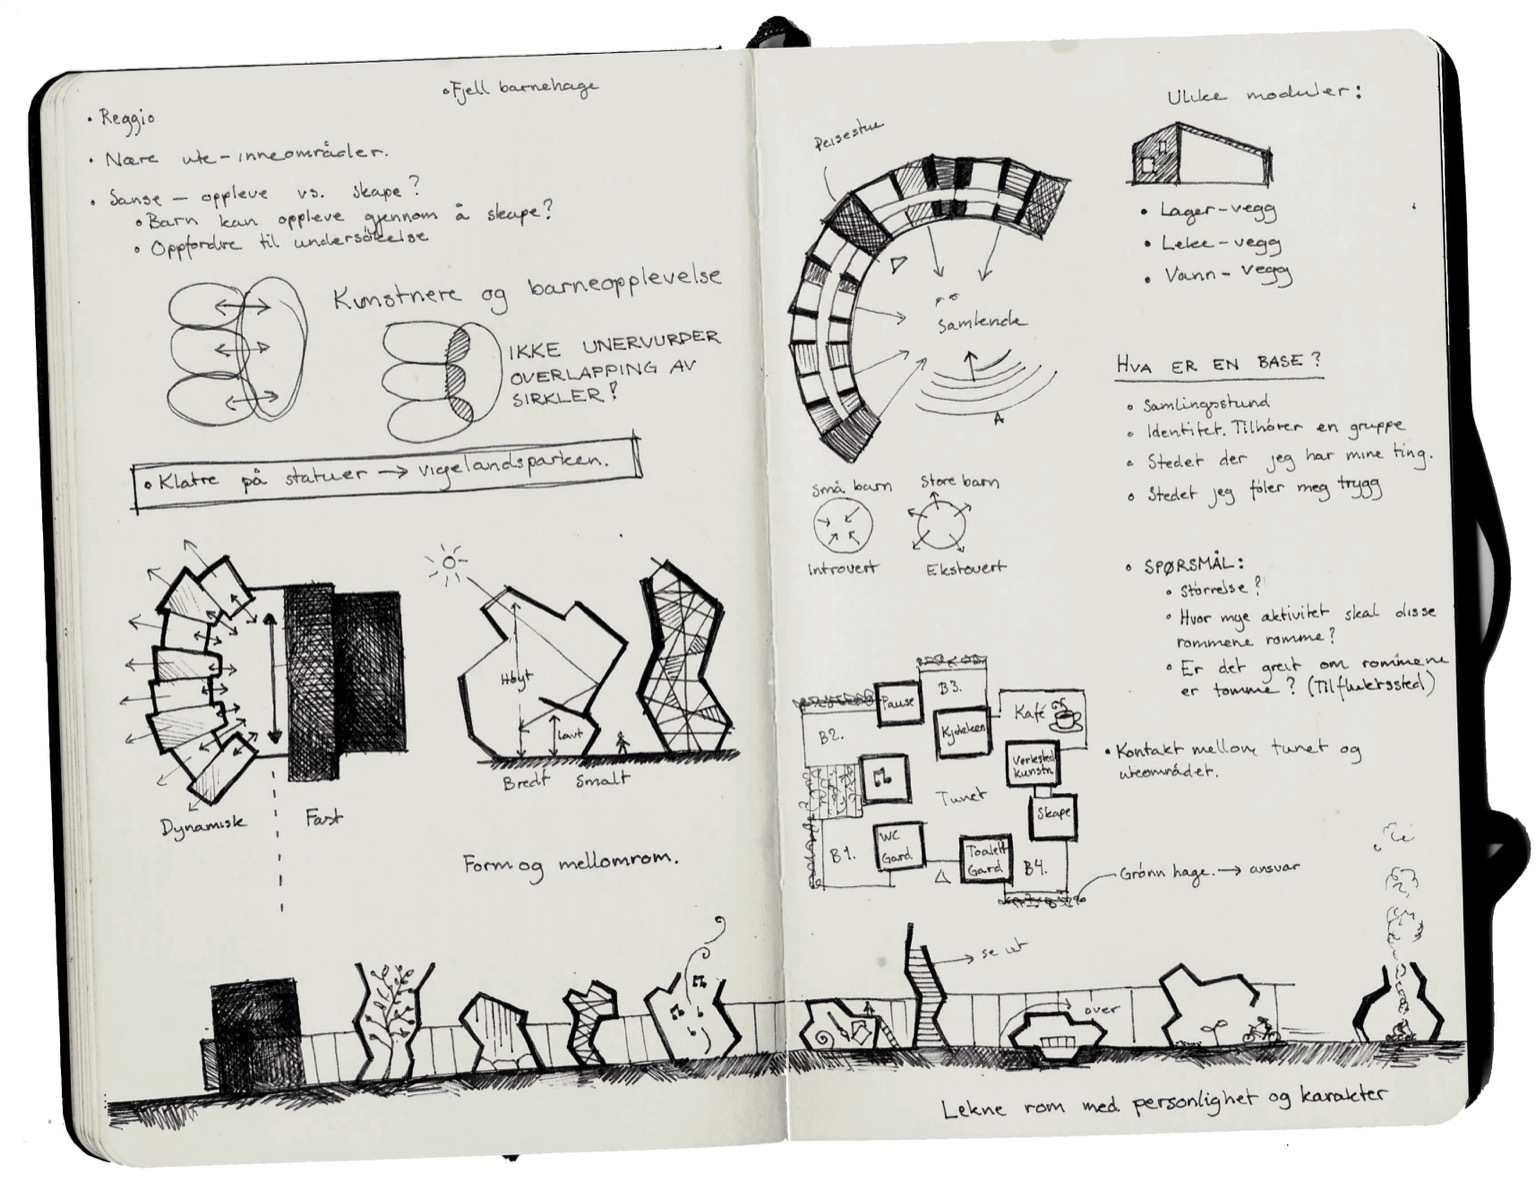 • Fjell barnehage
• Reggio
• Nære ute-inneområder.
• Sanse — oppleve vs. skape?
• Barn kan oppleve gjennom å skape?
• Oppfordre til undersökelse
Kunstnere og barneopplevelse
IKKE UNERVURDER
OVERLAPPING AV
SIRKLER!
• Klatre på statuer → vigelandsparken.
Dynamisk
Fast
Høyt
Lavt
Bredt Smalt
Form og mellomrom.
Peisestue
samlende
A
Små barn
Introvert
Store barn
Ekstovert
Ulike moduler:
• Lager-vegg
• Leke-vegg
• Vann-vegg
HVA ER EN BASE?
• Samlingsstund
• Identitet. Tilhører en gruppe
• Stedet der jeg har mine ting.
• Stedet jeg føler meg trygg
• SPØRSMÅL:
• Størrelse?
• Hvor mye aktivitet skal disse
rommene romme?
• Er det greit om rommene
er tomme? (Tilfluktssted)
• Kontakt mellom tunet og
uteområdet.
Pause
B3.
Kjøkken
Kafé
B2.
Verksted
Kunstn.
Tunet
Skape
B1.
WC
Gard
Toalett
Gard
B4.
Grønn hage. → ansvar
→ se ut
over
Lekne rom med personlighet og karakter